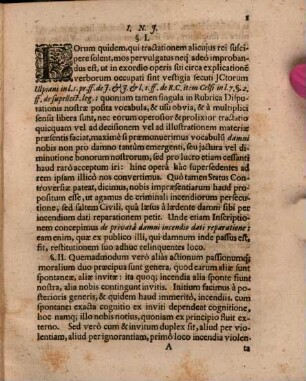 1
I. N. J.
§ I.
HOrum quidem, qui tractationem alicujus rei susci-
pere solent, mos pervulgatus neq; adeò improban-
dus est, ut in exordio operis sui circa explicationē
verborum occupati sint vestigia secuti JCtorum
Ulpiani in l. 1. pr. ff. de J. & J. & l. 1. ff. de R. C. item Celsi in l. 7. §. 2.
ff. de supellect. leg. : quoniam tamen singula in Rubrica Dispu-
tationis nostræ posita vocabula, & usu obvia, & à multiplici
sensu libera sunt, nec eorum operosior & prolixior tractatio
quicquam vel ad decisionem vel ad illustrationem materiæ
præsentis faciat, maximè si præmonuerimus vocabulō damni
nobis non pro damno tantùm emergenti, seu jactura vel di-
minutione bonorum nostrorum, sed pro lucro etiam cessanti
haud rarò acceptum iri: hinc operâ hâc supersedentes ad
rem ipsam illicò nos convertimus. Quò tamen Status Con-
troversiæ pateat, dicimus, nobis impræsentiarum haud pro-
positum esse, ut agamus de criminali incendiorum persecu-
tione, sed saltem Civili, quâ læsus à lædente damni sibi per
incendium dati reparationem petit. Unde etiam Inscriptio-
nem concepimus de privatâ damni incendio dati reparatione:
eam enim, quæ ex publico illi, qui damnum inde passus est,
fit, restitutionem suo adhuc relinquentes loco.
§. II. Quemadmodum verò aliàs actionum passionumq;
moralium duo præcipua sunt genera, quod earum aliæ sint
spontaneæ, aliæ invitæ: ita quoq; incendia alia sponte fiunt
nostra, alia nobis contingunt invitis. Initium facimus à po-
sterioris generis, & quidem haud immeritò, incendiis, cum
spontanei exacta cognitio ex inviti dependeat cognitione,
hoc namq; illo nobis notius, quoniam ex principio fluit ex-
terno. Sed verò cum & invitum duplex sit, aliud per vio-
lentiam, aliud per ignorantiam, primò loco incendia violen-
A
ta